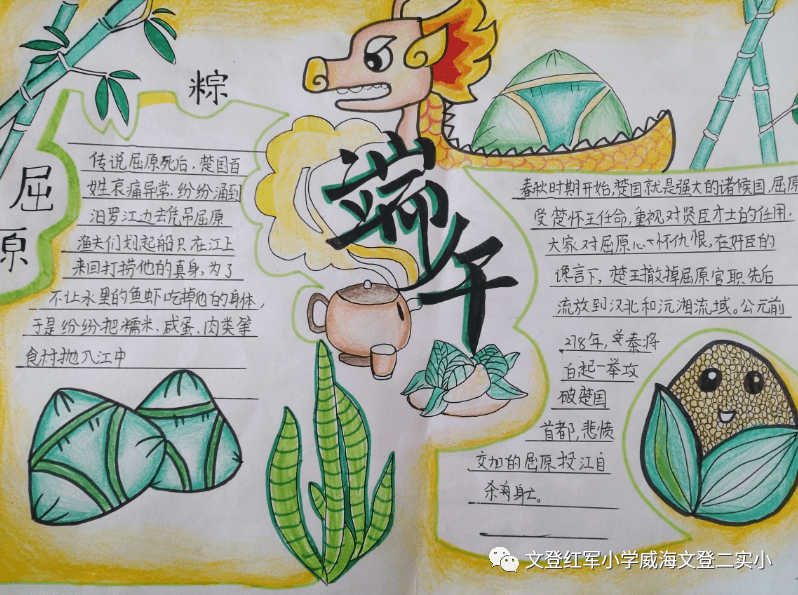 粽
屈原
传说屈原死后，楚国百
姓哀痛异常，纷纷涌到
汨罗江边去凭吊屈原
渔夫们划起船只，在江上
来回打捞他的真身，为了
不让水里的鱼虾吃掉他的身体，
于是纷纷把糯米、咸蛋、肉类等
食材抛入江中
端午
春秋时期开始，楚国就是强大的诸候国，屈原
受楚怀王任命，重视对贤臣才士的任用，
大家对屈原心怀仇恨，在奸臣的
谗言下，楚王撤掉屈原官职，先后
流放到汉北和沅湘流域。公元前
278年，秦将
白起一举攻
破楚国
首都，悲愤
交加的屈原投江自
杀身亡。
文登红军小学威海文登二实小